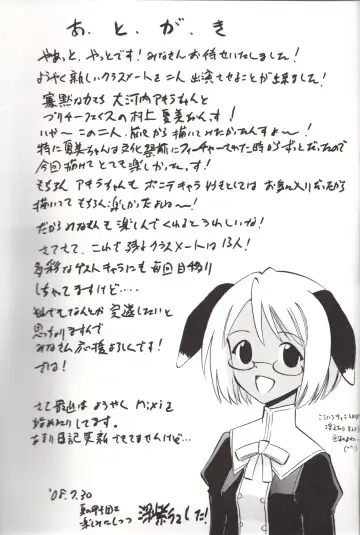 あ、と、が、き
やぁっと、やっとです！みなさんお待せいたしました！
ようやく新しいクラスメートを二人出演させることが出来ました！
寡黙なカモち 大河内アキラちゃんと
プリティーフェイスの村上夏美ちゃんです！
いや～この二人、前から描いてみたかったんすよ～！
特に夏美ちゃんは文化祭前にフィーチャーされた時からずっとだったので
今回描けてとても楽しかったっす！
もちろん アキラちゃんも ポニテキャラ好きとしては お気に入りだったから
描いてて もちろん楽しかったわね～！
だからみなさんも楽しんでくれるとうれしいな！
さてさて、これで残るクラスメートは13人！
多彩なゲストキャラにも毎回目移り
しちゃてますけど……
なんとか完遂したいと
思っておりますんで
みなさん応援よろしくです！
でわ！
さて最近は ようやく mixiを
始めたりしてます。
あまり日記更新できてませんけど…
'08.7.30
(^^;)